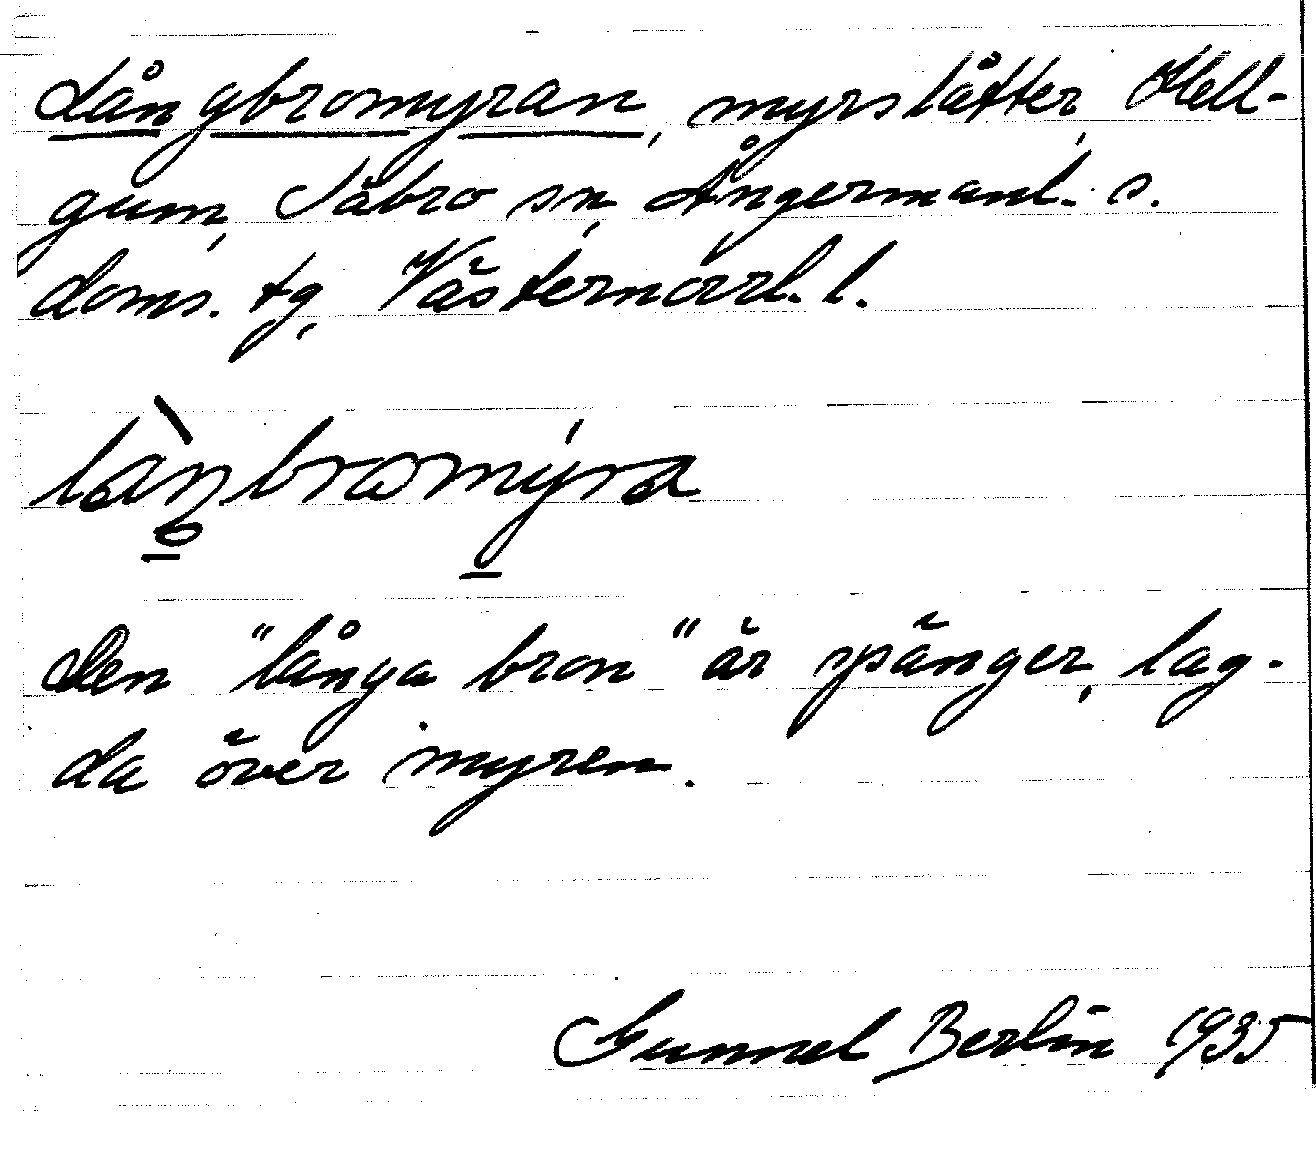 Långbromyran, myrslåtter, Hell-
gum, Säbrå sn, Ångermanl. s.
doms. tg, Västernorrl. l.
làŋbromýra
Den "långa bron" är spänger, lag-
da över myren.
Gunnel Berlin 1935